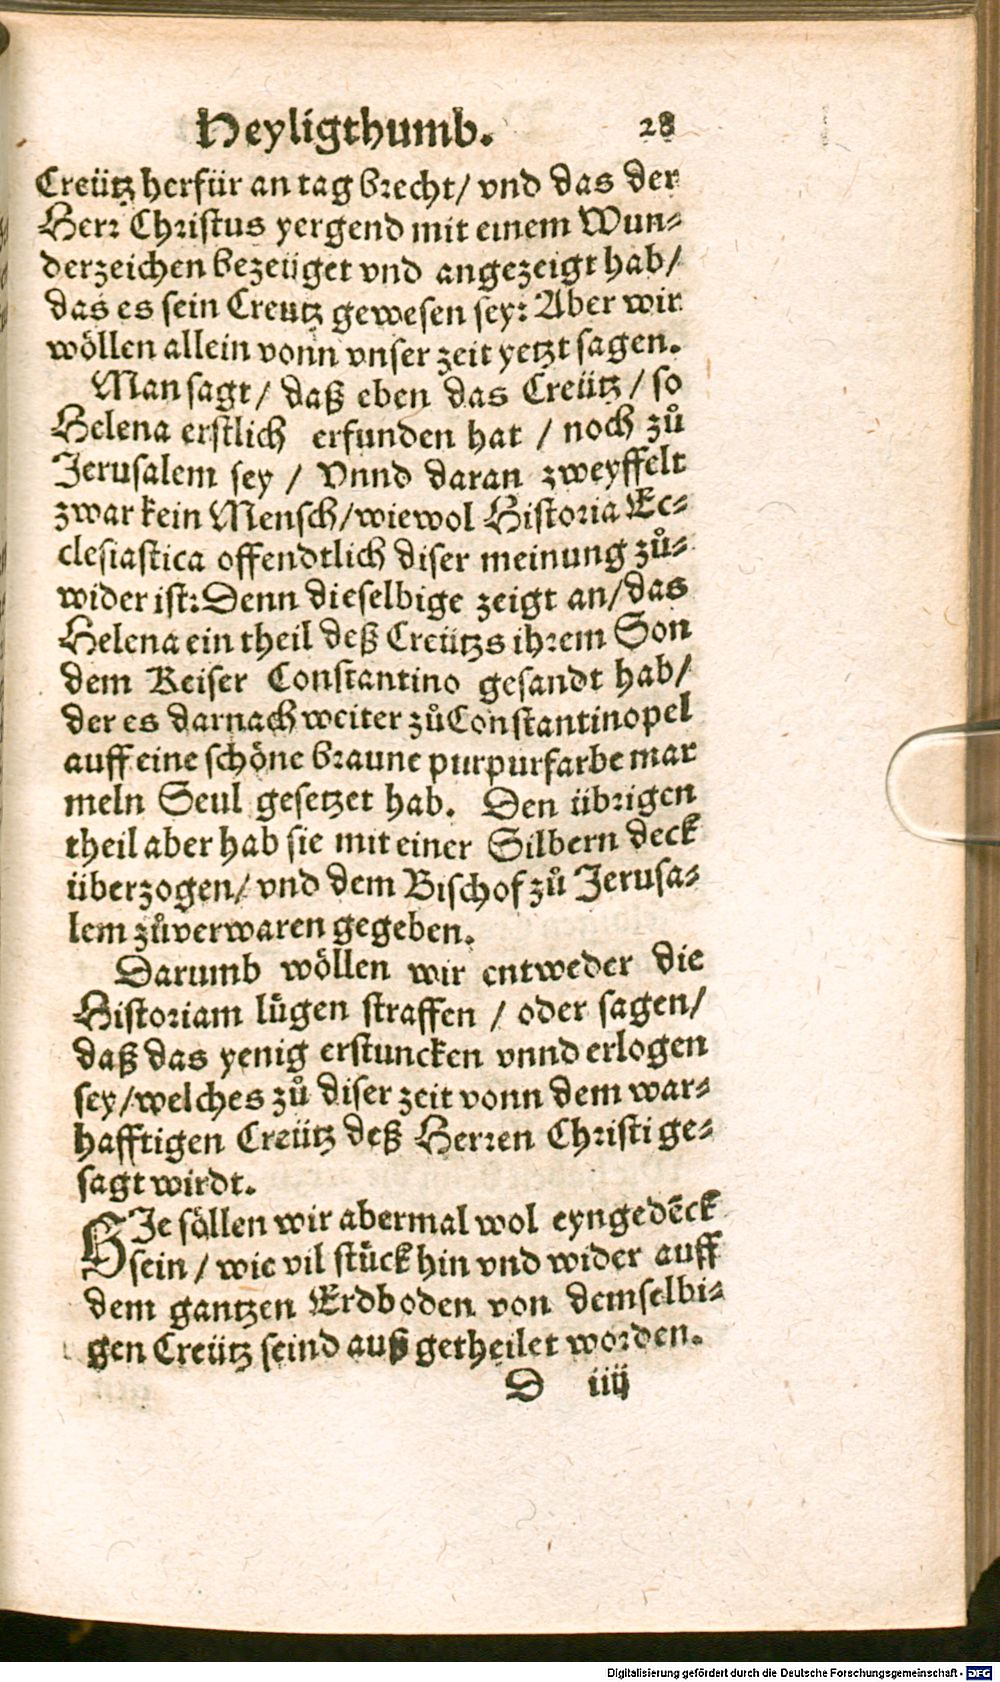 Heyligthumb. 28
Creütz herfür an tag brecht/ vnd das der
Herr Christus yergend mit einem Wun-
derzeichen bezeüget vnd angezeigt hab/
das es sein Creutz gewesen sey: Aber wir
wöllen allein vonn vnser zeit yetzt sagen.
Man sagt/ daß eben das Creütz/ so
Helena erstlich erfunden hat / noch zů
Jerusalem sey / Vnnd daran zweyffelt
zwar kein Mensch/ wiewol Historia Ec-
clesiastica offendtlich diser meinung zů-
wider ist: Denn dieselbige zeigt an/ das
Helena ein theil deß Creützs ihrem Son
dem Keiser Constantino gesandt hab/
der es darnach weiter zů Constantinopel
auff eine schöne braune purpurfarbe mar
meln Seul gesetzet hab. Den übrigen
theil aber hab sie mit einer Silbern deck
überzogen/ vnd dem Bischof zů Jerusa-
lem zůverwaren gegeben.
Darumb wöllen wir entweder die
Historiam lügen straffen / oder sagen/
daß das yenig erstuncken vnnd erlogen
sey/ welches zů diser zeit vonn dem war-
hafftigen Creütz deß Herren Christi ge-
sagt wirdt.
HIe söllen wir abermal wol eyngedẽck
sein / wie vil stück hin vnd wider auff
dem gantzen Erdboden von demselbi-
gen Creütz seind auß getheilet worden.
D iiij
Digitalisierung gefördert durch die Deutsche Forschungsgemeinschaft - DFG